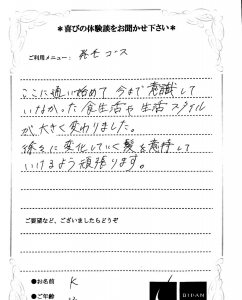 *喜びの体験談をお聞かせ下さい*
ご利用メニュー： 発毛コース
ここに通い始めて今まで意識して
いなかった食生活や生活スタイル
が大きく変わりました。
徐々に変化していく髪を維持して
いけるよう頑張ります。
ご要望など、ございましたらどうぞ
●お名前 K
●ご年齢
BIPAN